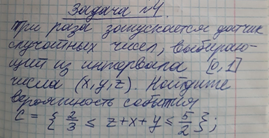 Задача №1.
Три раза запускается датчик
случайных чисел, выбираю-
щий из интервала [0,1]
числа (x, y, z). Найдите
вероятность события
C = { 2/3 ≤ z+x+y ≤ 5/2 };